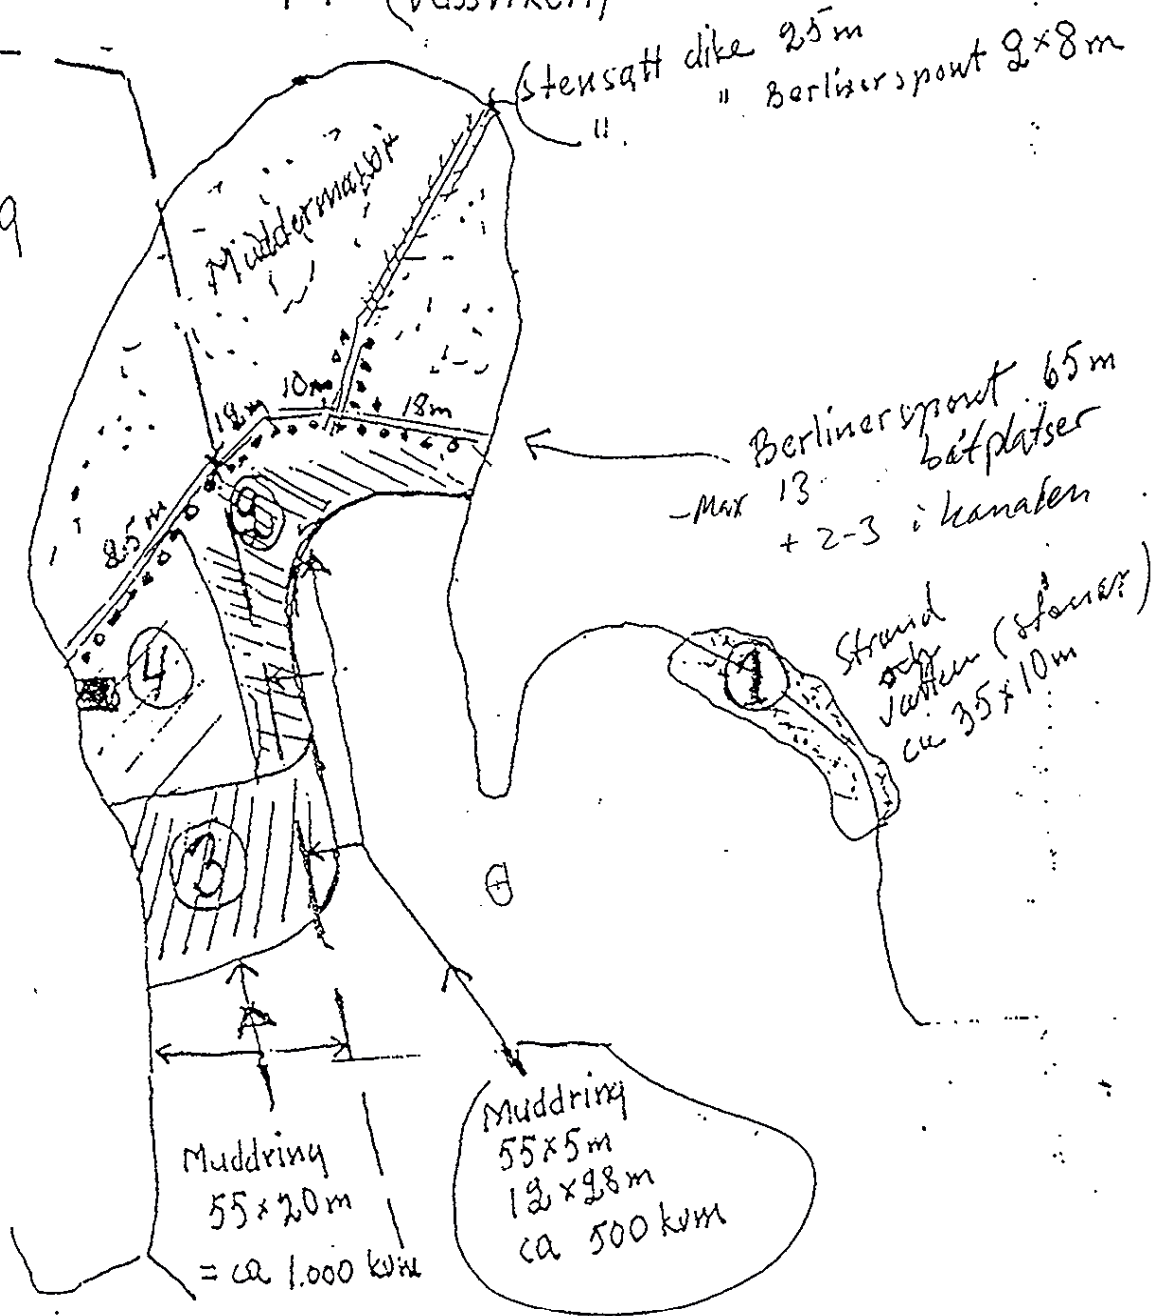 (Vassviken)
9
Stensatt dike 25m
" " Berlinerspont 2×8m
Muddermassor
10m
12m
18m
25m
Berlinerspont 65m
-Max 13 båtplatser
+ 2-3 i kanalen
4
1
Strand
och
vatten (stenar)
ca 35×10m
3
Muddring
55×20m
= ca 1.000 kvm
Muddring
55×5m
12×28m
ca 500 kvm